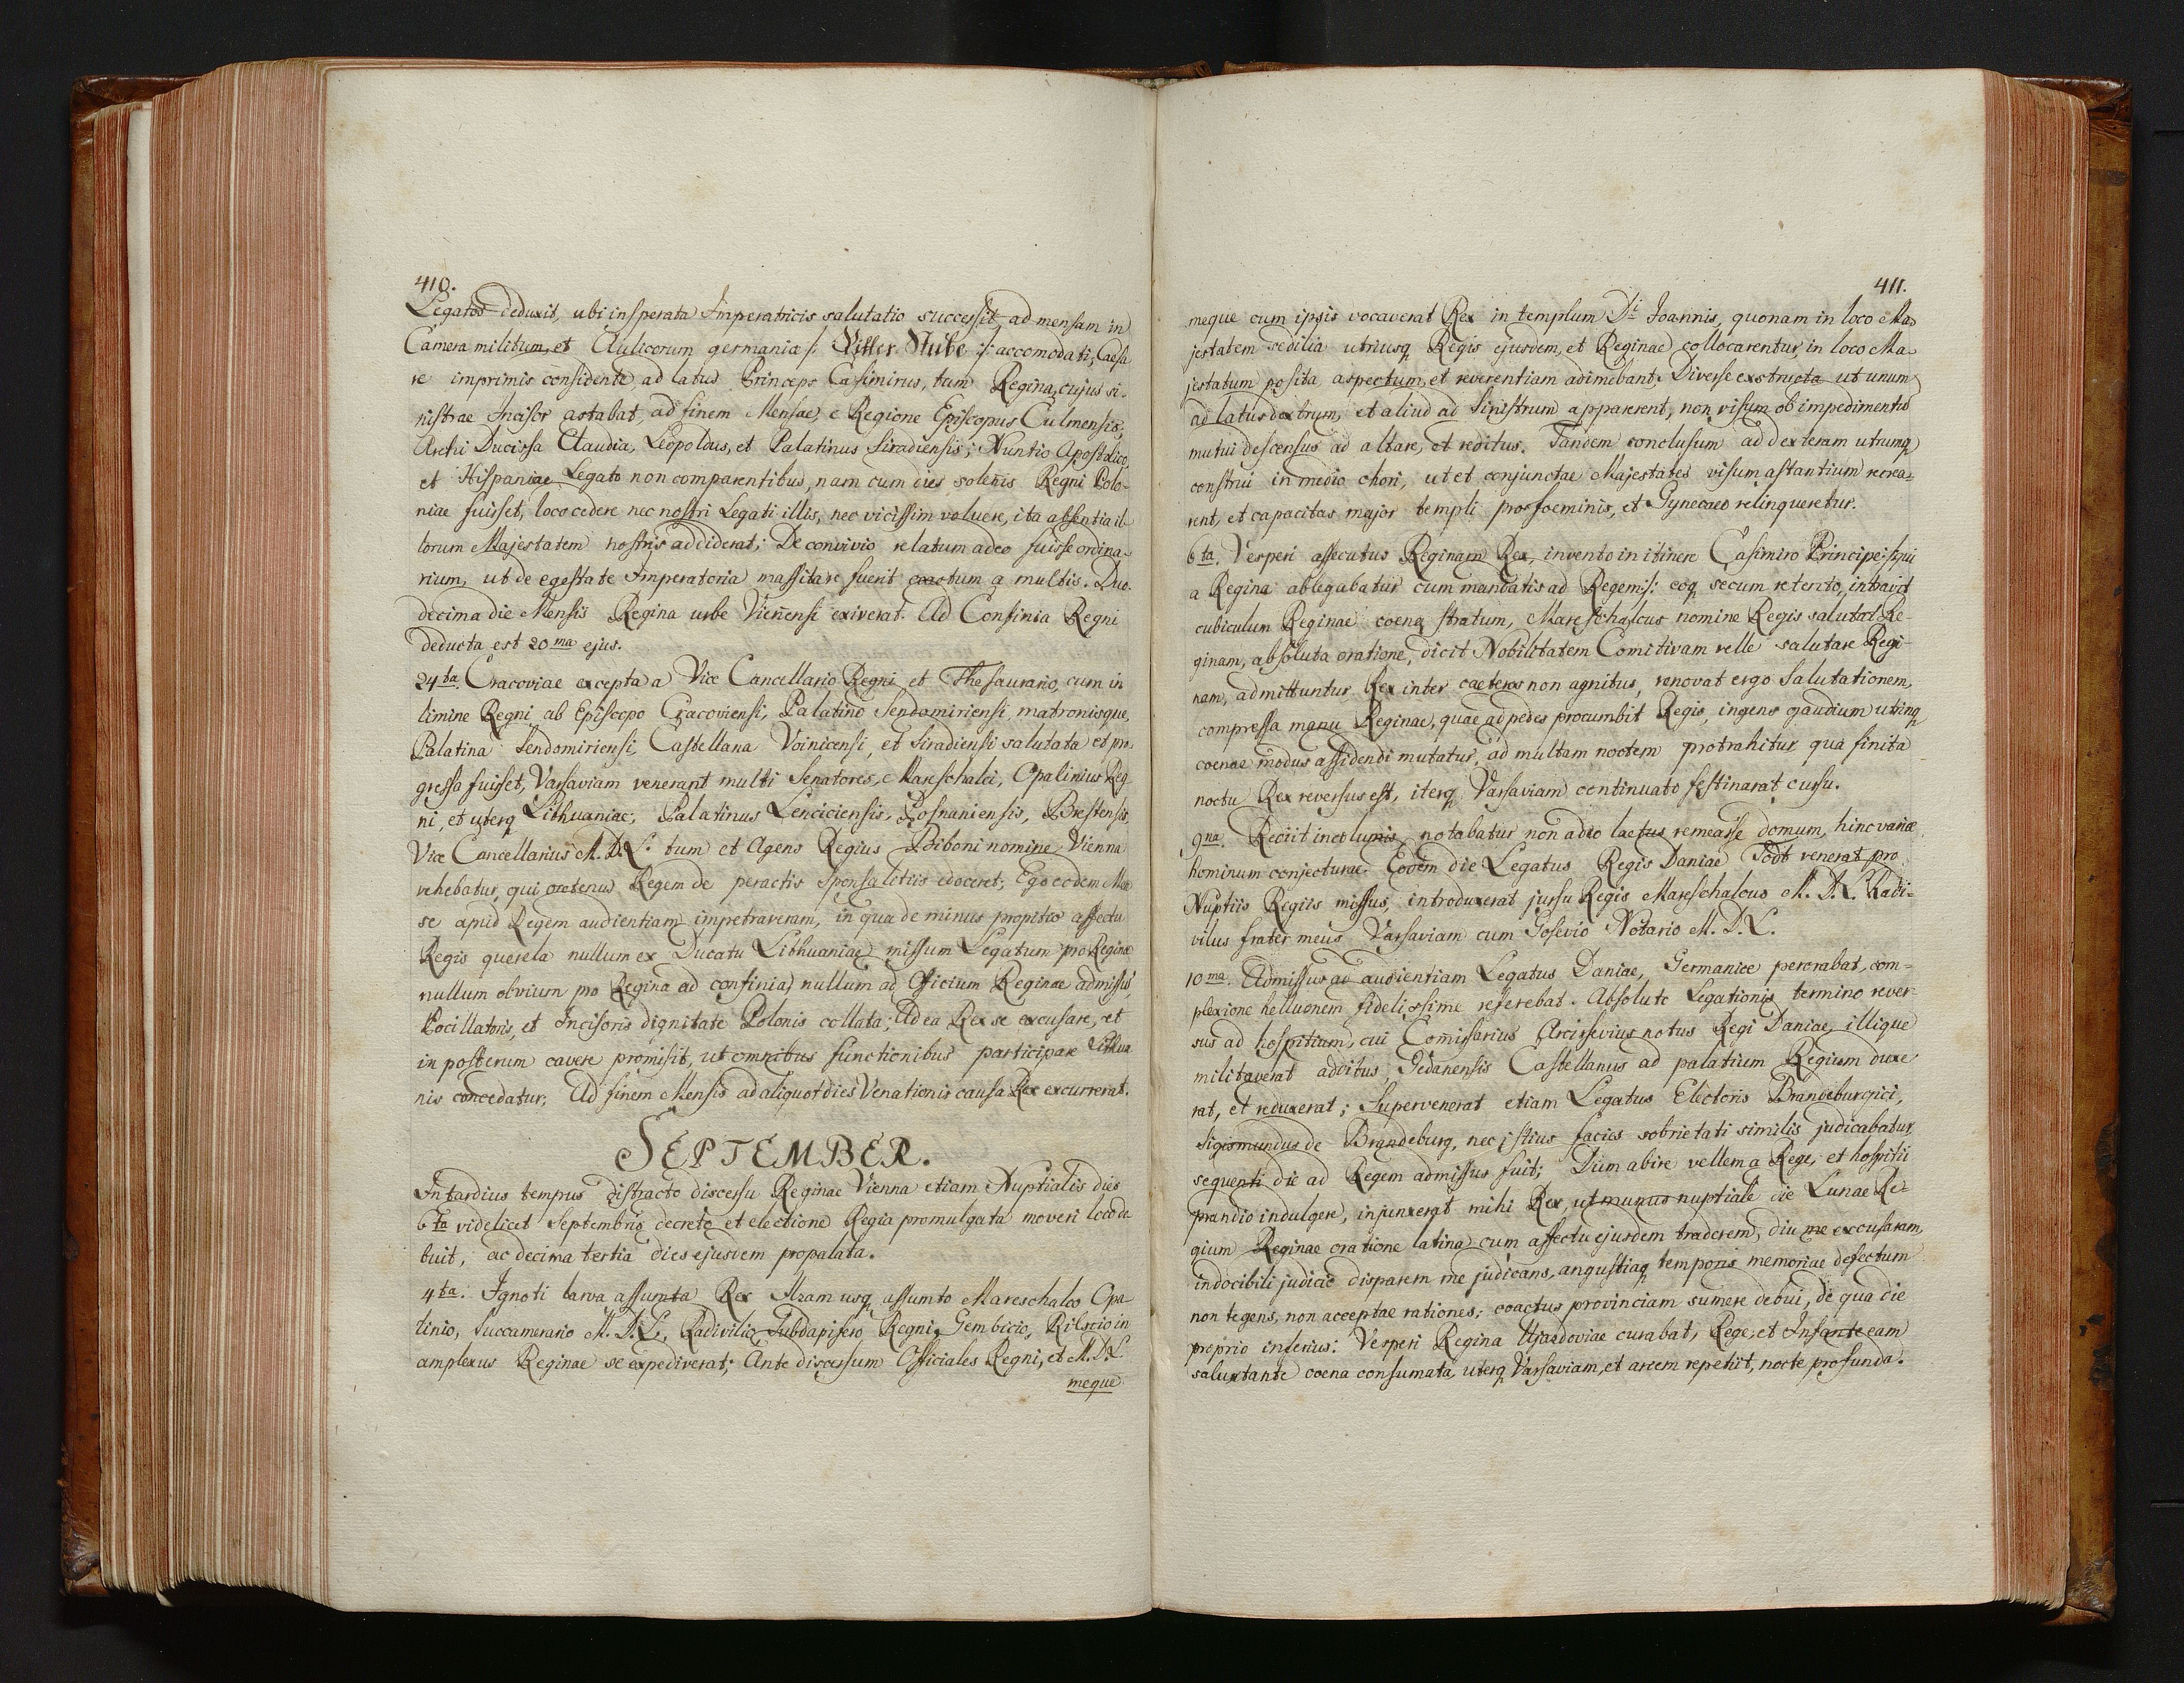 410.
Legatos deduxit, ubi insperata Imperatricis salutatio successit, ad mensam in
Camera militum, et Aulicorum germanice /: Ritter Stube :/ accomodati, Caesa
re imprimis considente, ad latus Princeps Casimirus, tum Regina, cujus si-
nistrae Incisor astabat, ad finem Mensae, e Regione Episcopus Culmensis,
Archi Ducissa Claudia, Leopoldus, et Palatinus Siradiensis; Nuntio Apostolico,
et Hispaniae Legato non comparentibus, nam cum dies solenis Regni Polo-
niae fuisset, loco cedere nec nostri Legati illis, nec vicissim voluere, ita absentia il-
lorum Majestatem nostris addiderat; De convivio relatum adeo fuisse ordina-
rium, ut de egestate Imperatoria massitare fuerit coactum a multis. Duo-
decima die Mensis Regina urbe Vienensi exiverat. Ad Confinia Regni
deducta est 20ma ejus.
24ta. Cracoviae excepta a Vice Cancellario Regni et Thesaurario, cum in
limine Regni ab Episcopo Cracoviensi, Palatino Sendomiriensi, matronisque,
Palatina Sendomiriensi, Castellana Voinicensi, et Siradiensi salutata et pro-
gressa fuisset, Varsaviam venerant multi Senatores, Mareschalci, Opalinius Reg-
ni, et uterq Lithuaniae, Palatinus Lenciciensis, Posnaniensis, Brestensis,
Vice Cancellarius M. D. L. tum et Agens Regius Biboni nomine, Vienna
vehebatur, qui oretenus Regem de peractis sponsalitiis edoceret; Ego eodem Men
se apud Regem audientiam impetraveram, in qua de minus propitio affectu
Regis querela nullum ex Ducatu Lithuaniae missum Legatum pro Regina
nullum obvium pro Regina ad confinia, nullum ad Officium Reginae admissus,
Pocillatoris, et Incisoris dignitate Polonis collata; Ad ea Rex se excusare, et
in posterum cavere promisit, ut omnibus functionibus participare Lithua
nis concedatur; Ad finem Mensis ad aliquot dies Venationis causa Rex excurrerat.
SEPTEMBER.
In tardius tempus distracto discessu Reginae Vienna etiam Nuptialis dies
6ta videlicet Septembris decreto et electione Regia promulgata moveri loco de
buit, ac decima tertia dies ejusdem propalata.
4ta. Ignoti larva assumta Rex Ilzam usq assumto Mareschalco Opa
linio, Succamerario M. D. L. Radivilio, Subdapifero Regni Gembicio, in
amplexus Reginae se expediverat; Ante discessum Officiales Regni, et M. D. L
meque
411.
meque cum ipsis vocaverat Rex in templum Di Joannis, quonam in loco Ma-
jestatem sedilia utriusq Regis ejusdem, et Reginae collocarentur, in loco Ma-
jestatum posita aspectum, et reverentiam adimebant. Diverse exstructa ut unum
ad latus dextrum, et aliud ad Sinistrum apparerent, non visum ob impedimentu
mutui descensus ad altare, et reditus. Tandem conclusum ad dexteram utrumq
construi in medio chori, ut et conjunctae Majestates visum astantium recrea-
rent, et capacitas major templi pro foeminis, et Gynecaeo relinqueretur.
6ta. Vesperi assecutus Reginam Rex, invento in itinere Casimiro Principe /: qui
a Regina ablegabatur cum mandatis ad Regem :/ eoq secum retento, intravit
cubiculum Reginae coena stratum, Mareschalcus nomine Regis salutat Re-
ginam, absoluta oratione, dicit Nobilitatem Comitivam velle salutare Regi-
nam, admittuntur Rex inter caeteros non agnitus, renovat ergo Salutationem,
compressa manu Reginae, quae ad pedes procumbit Regis, ingens gaudium utrinq
coenae modus assidendi mutatur, ad multam noctem protrahitur qua finita
noctu Rex reversus est, iterq Varsaviam continuato festinarat cursu.
9na. Rediit incolumis, notabatur non adeo laetus remeasse domum, hinc variae
hominum conjecturae. Eodem die Legatus Regis Daniae Todt venerat pro
Nuptiis Regiis missus, introduxerat jussu Regis Mareschalcus M. D. L. Radi-
vilus frater meus Varsaviam cum Gosevio Notario M. D. L.
10ma. Admissus ad audientiam Legatus Daniae, Germanice perorabat, com-
plexione helluonem fidelissime referebat. Absoluto Legationis termino rever-
sus ad hospitium, cui Comissarius Arcisevius notus Regi Daniae, illique
militaverat additus, Gedanensis Castellanus ad palatium Regium duxe
rat, et reduxerat; Supervenerat etiam Legatus Electoris Brandeburgici,
Sigismundus de Brandeburg, nec istius facies sobrietati similis judicabatur,
sequenti die ad Regem admissus fuit; Dum abire vellem a Rege, et hospitii
prandio indulgere, injunxerat mihi Rex, ut munus nuptiale die Lunae Re-
gium Reginae oratione latina cum affectu ejusdem traderem, diu me excusaram,
indocibili judicio disparem me judicans, angustiaq temporis memoriae defectum
non tegens, non acceptae rationes; coactus provinciam sumere debui, de qua die
proprio inferius: Vesperi Regina Ujasdoviae curabat, Rege, et Infante eam
salutante coena consumata, uterq Varsaviam, et arcem repetiit, nocte profunda.